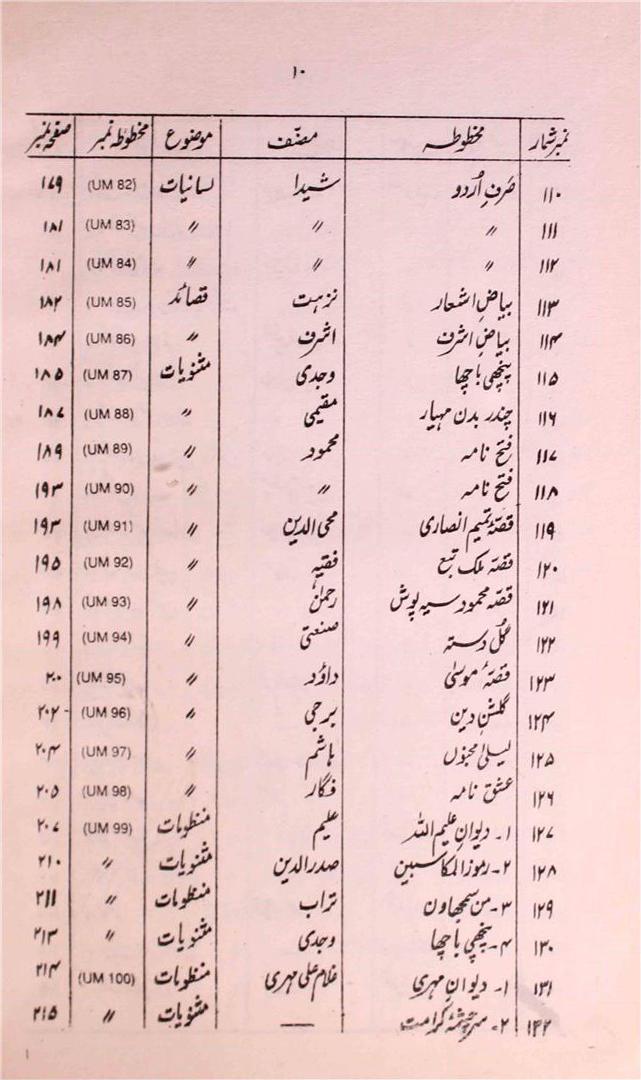 ۱۰
نمبر شمار مخطوطہ مصنّف موضوع مخطوطہ نمبر صفحہ نمبر
۱۱۰ صَرفِ اُردو شیدا لسانیات (UM 82) ۱۷۹
۱۱۱ 〃 〃 〃 (UM 83) ۱۸۱
۱۱۲ 〃 〃 〃 (UM 84) ۱۸۱
۱۱۳ بیاضِ اشعار نزہت قصائد (UM 85) ۱۸۲
۱۱۴ بیاضِ اشرف اشرف 〃 (UM 86) ۱۸۴
۱۱۵ پنچھی باچھا وجدی مثنویات (UM 87) ۱۸۵
۱۱۶ چندر بدن مہیار مقیمی 〃 (UM 88) ۱۸۷
۱۱۷ فتح نامہ محمود 〃 (UM 89) ۱۸۹
۱۱۸ فتح نامہ 〃 〃 (UM 90) ۱۹۳
۱۱۹ قصّۂ تمیم انصاری محی الدین 〃 (UM 91) ۱۹۳
۱۲۰ قصّہ ملک تبع فقیہ 〃 (UM 92) ۱۹۵
۱۲۱ قصّہ محمود سیہ پوش رحمٰن 〃 (UM 93) ۱۹۸
۱۲۲ گُل دستہ صنعتی 〃 (UM 94) ۱۹۹
۱۲۳ قصّۂ موسیٰ داؤد 〃 (UM 95) ۲۰۰
۱۲۴ گلشنِ دین برجی 〃 (UM 96) ۲۰۲-
۱۲۵ لیلیٰ مجنوں ہاشم 〃 (UM 97) ۲۰۴
۱۲۶ عشق نامہ فگار 〃 (UM 98) ۲۰۵
۱۲۷ ۱۔ دیوانِ علیم اللہ علیم منظومات (UM 99) ۲۰۷
۱۲۸ ۲۔ رموز المکاسبین صدر الدین مثنویات 〃 ۲۱۰
۱۲۹ ۳۔ من سمجھاون تراب منظومات 〃 ۲۱۱
۱۳۰ ۴۔ پنچھی باچھا وجدی مثنویات 〃 ۲۱۳
۱۳۱ ۱۔ دیوانِ مہری غلام علی مہری منظومات (UM 100) ۲۱۴
۱۳۲ ۲۔ سرچشمۂ کرامت — مثنویات 〃 ۲۱۵